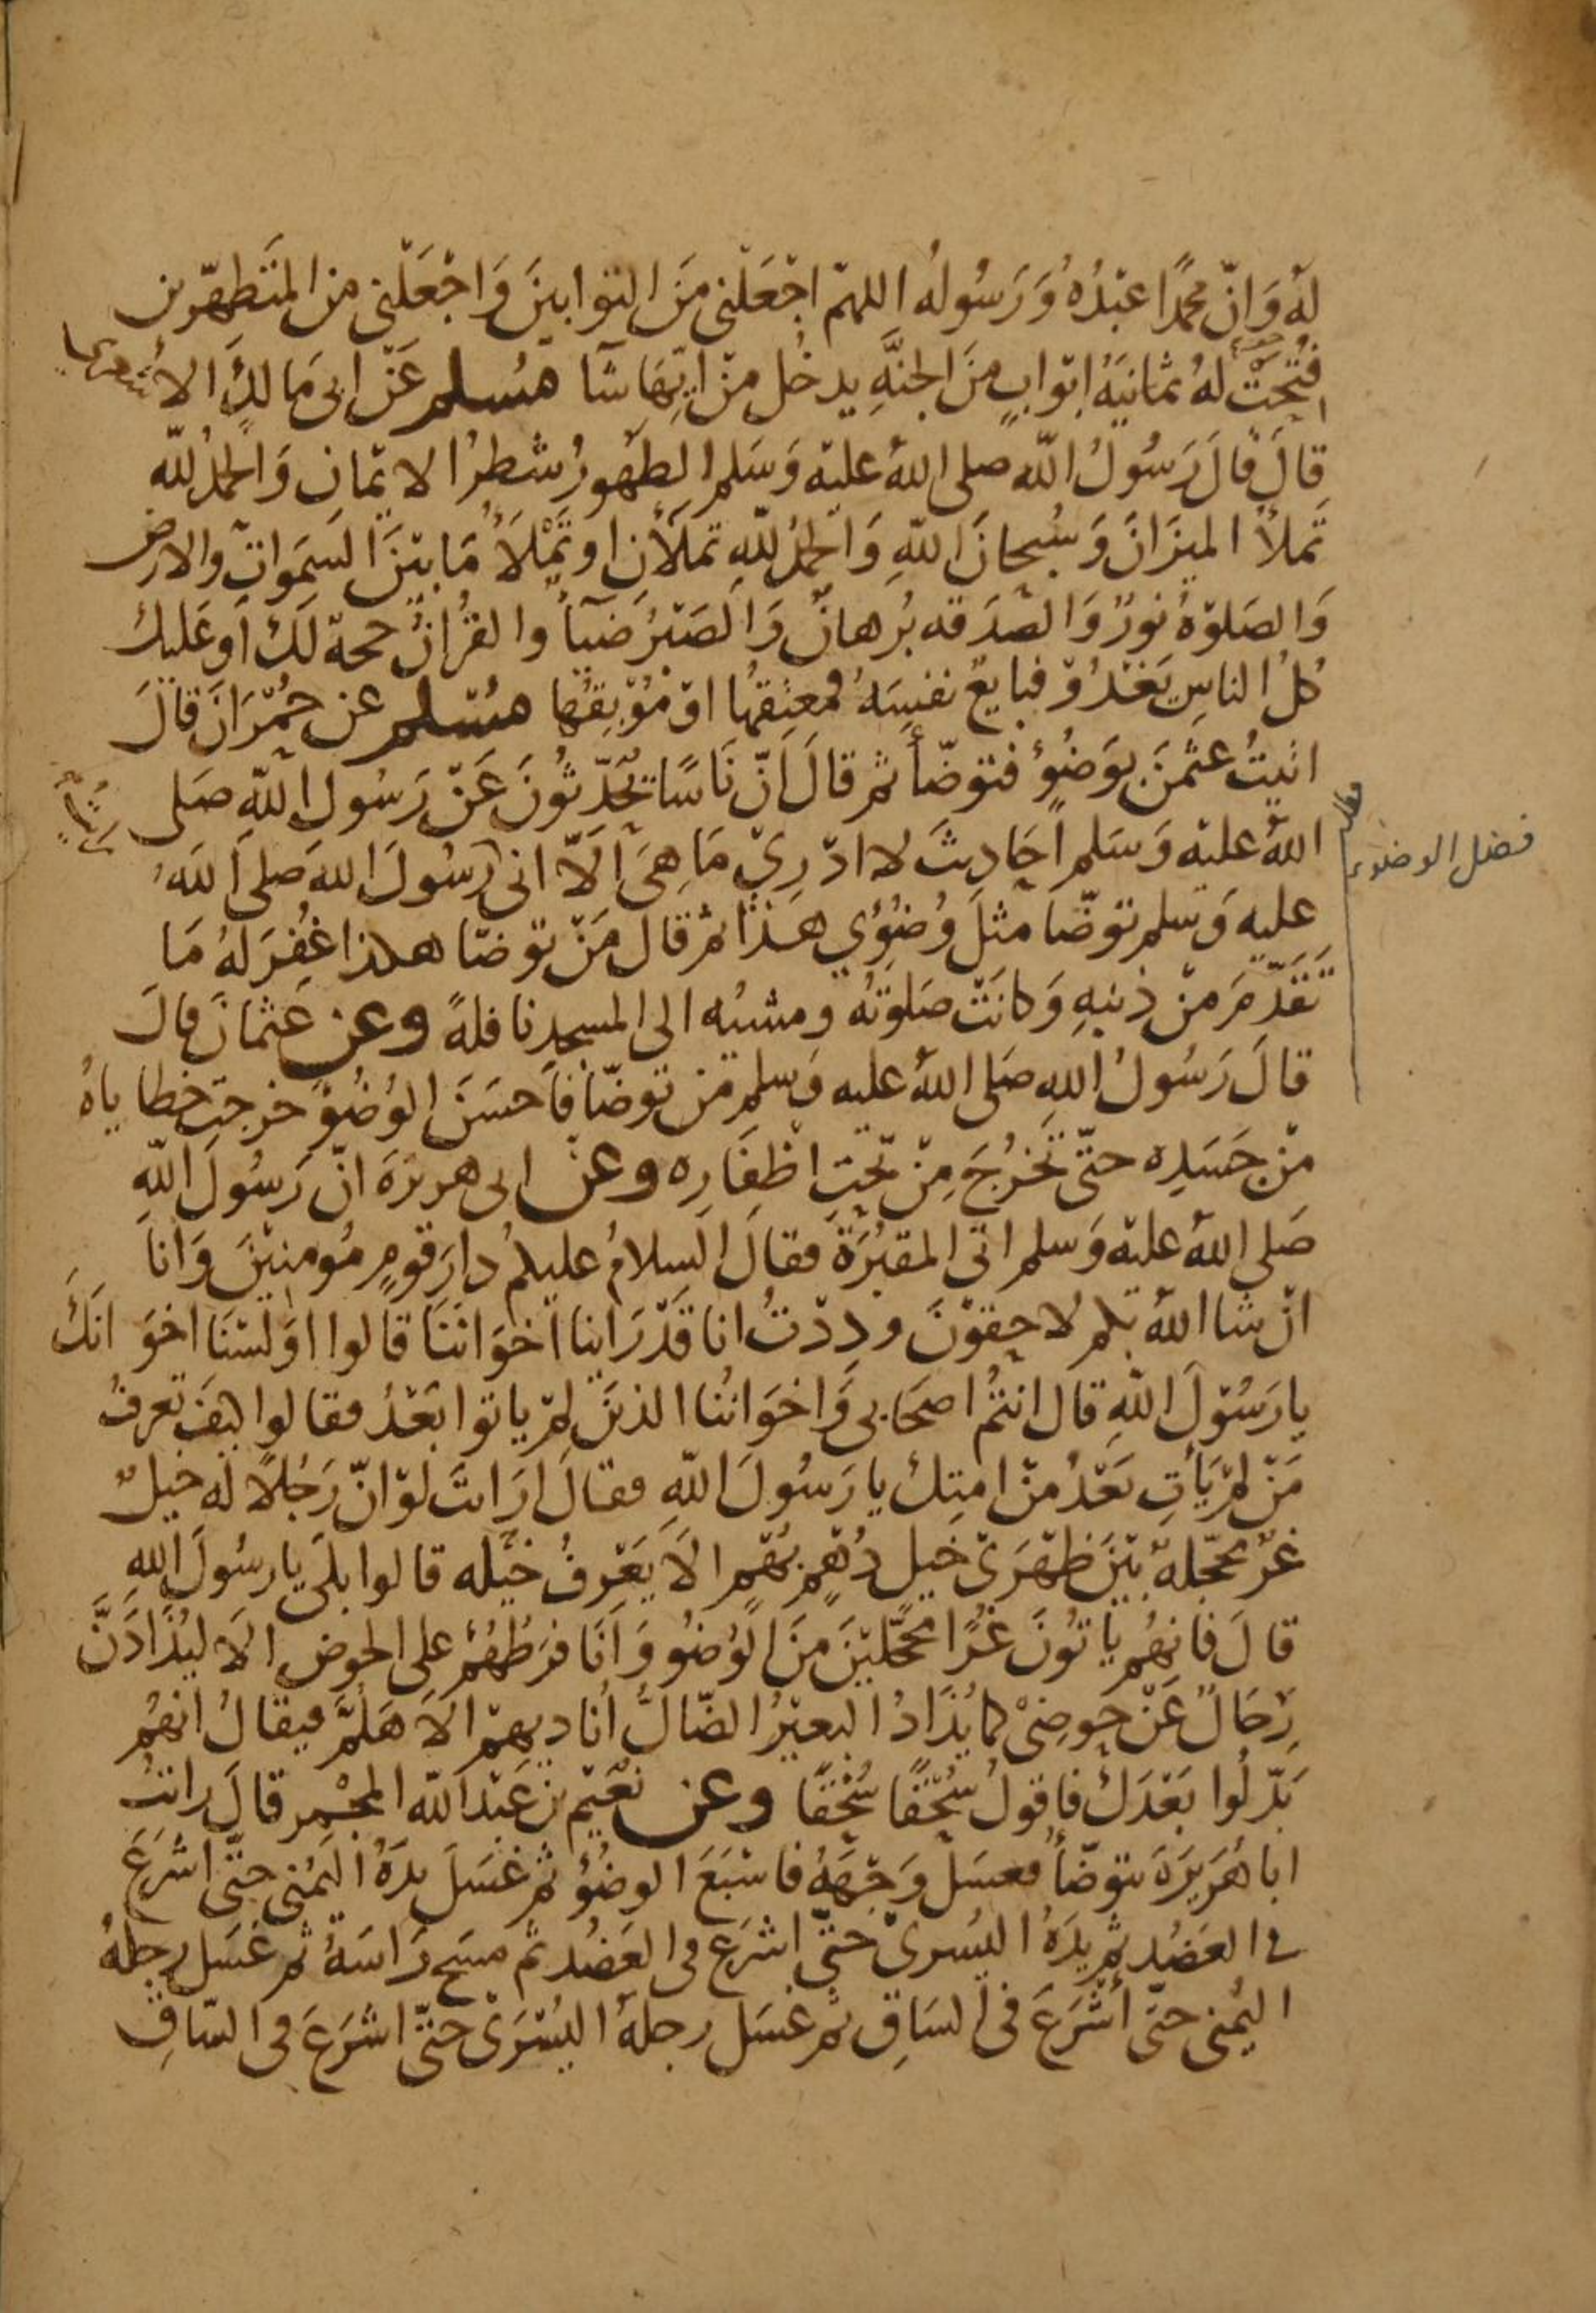 لَهُ وَانّ محمدًا عَبْدُهُ وَرَسُولُه اللهمّ اجْعَلْنى مَنَ التوابينَ وَاجْعَلْنى من المتَطهّرين
فُتِحَتْ لهُ ثمانيَةُ ابْوابٍ منَ الجنَّةِ يدخُل منْ ايّهَا شآ مُسلم عَنْ ابى مَالكٍ الاشعرى
قالَ قالَ رَسُولُ اللّه صلى اللهُ عليْه وَسَلم الطهُورُ شطرُ الايْمَانِ وَالحمدُ للّه
تَملأ الميْزَانَ وَسُبحانَ اللّهِ وَالحمْدُ للّهِ تملَأَنِ او تَمْلَأُ مَا بيْنَ السَمَواتِ والارض
وَالصَلوٰةُ نورٌ وَالصّدَقه بُرهانٌ وَالصَبْرُ ضيآٌ والقرُانُ حجة لَكَ اَو عَليكَ
كلُ الناسِ يَغْدُوْ فبايعٌ نفسَهُ فمعتِقُهَا اوْ مُوْبِقُها مسْلم عن حُمْرَانَ قالَ
اتيتُ عثمٰنَ بوَضُوءٍ فتوضّأ ثم قالَ انّ نَاسًا يتحَدّثُونَ عَنْ رَسُولِ اللّهِ صَلى
اللهُ عليْه وَسَلم احَادِيثَ لا ادْرِيْ مَا هِىَ اَلّا انى رَسُولَ الله صَلى اللهُ
فضل الوضوء
عليهِ وَسلم توضّا مثلَ وُضُوْئي هذَا ثم قال مَنْ توضّا هكذا غُفِرَ لهُ مَا
تَقَدّمَ منْ ذنبهِ وَكانَتْ صَلوتُه ومشيُه الى المسجدِ نافلةً وعن عثمانَ قالَ
قالَ رَسُولُ اللهِ صَلى اللهُ عليه وَسلم مَن توضّأ فاَحسَنَ الوُضُوْ خرجتْ خطاياهُ
منْ جَسَدِه حتّى تخرُجَ مِنْ تحْتِ اظفَارِه وعن ابى هريرَة انّ رَسُولَ اللّهِ
صَلى اللهُ عليْه وَسلم اتى المقبُرَةَ فقالَ السلامُ عليكمْ دارَ قومٍ مُومنيْنَ وَانا
انْ شا اللهُ بكم لاحِقوْنَ ودِدْتُ انا قدْ رَاينا اخوَانَنَا قالوا اوَلسْنَا اخوَانَكَ
يا رَسُوْلَ اللّهِ قال انتمُ اصحَابى وَاخوَانُنا الذينَ لمْ ياتوا بَعْدُ فقالوا كيفَ تعرفُ
مَنْ لمْ يَأتِ بَعْدُ منْ امتِكَ يا رَسُولَ اللّهِ فقالَ ارَايتَ لوْ انّ رَجُلًا له خيلٌ
غرٌّ محجّلةٌ بيْنَ ظهْرَىْ خيلٍ دُهْمٍ بُهْمٍ الَا يَعْرِفُ خيْله قالوا بلَى يا رسُولَ اللهِ
قالَ فانهُم ياتُونَ غُرًّا محجّليْنَ منَ الوُضُو وَانَا فرَطُهُمْ على الحوض الَا ليُذَادَنَّ
رِجَالٌ عَنْ حوضِىْ كما يُذَادُ البعيْرُ الضّالُّ اُناديهمْ الَا هَلمَّ فيقالُ انهُم
بَدّلُوا بَعْدَكَ فاقولُ سُحْقًا سُحْقًا وعن نُعَيْم بن عَبْد اللّه المجْمر قالَ رايتُ
ابا هُرَيرَةَ يتوضّأُ فغسَلَ وَجْهَهُ فاسْبَغَ الوضُوُ ثم غسَلَ يدَهُ اليُمْنى حتّى اشرَعَ
فى العَضُد ثم يدَهُ اليُسرىْ حتّى اشرَع فى العَضُد ثم مسَحَ رَاسَهُ ثم غسَلَ رجلهُ
اليُمنى حتى اَشرَعَ فى السَاقِ ثم غسَل رجلهُ اليُسْرَىْ حتّى اشرَعَ فى السّاقِ